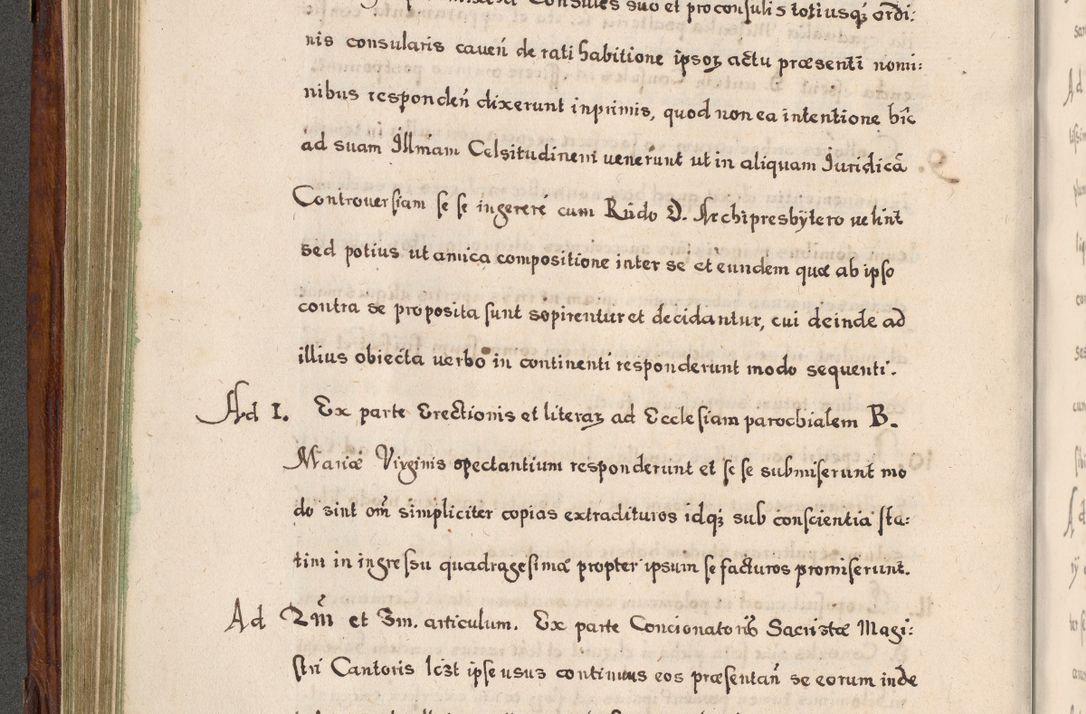 Consules suo et proconsulis totiusq; ordi:
nis consularis caueñ de rati habitione ipsoꝝ actu præsenti nomi:
nibus respondeñ dixerunt inprimis, quod non ea intentione hic
ad suam Illmam Celsitudinem uenerunt ut in aliquam Iuridicā
Controuersiam se se ingerere cum Rndo D. Archipresbÿtero uelint
sed potius ut amica compositione inter se et eundem quæ ab ipso
contra se proposita sunt sopirentur et decidantur, cui deinde ad
illius obiecta uerbo in continenti responderunt modo sequenti.
Ad I. Ex parte Erectionis et literaꝝ ad Ecclesiam parochialem B.
Mariæ Virginis spectantium responderunt et se se submiserunt mo
do sint om̄ simpliciter copias extradituros idq; sub conscientia sta:
tim in ingressu quadragesimæ propter ipsum se facturos promiserunt.
Ad 2m et 3m. articulum. Ex parte Concionatoris Sacristæ Magi:
stri Cantoris licet ipse usus continuus eos præsentañ se eorum inde